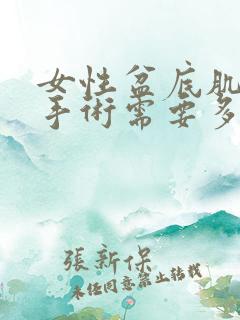 女性盆底肌
手術需要多
張新保
未经同意禁止转载